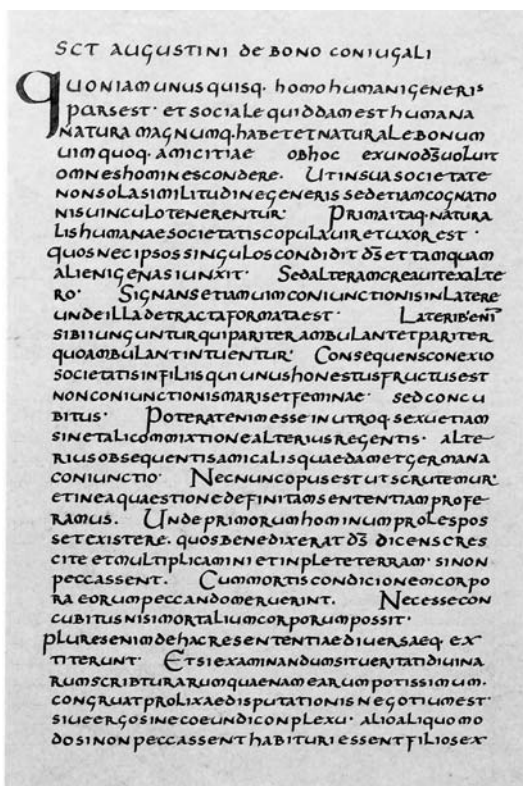 SCT AUGUSTINI de BONO CONIUGALI
QUONIAM UNUS QUISQ· homo humani generis
pars est· et sociale quiddam est humana
natura magnumq· habet et naturale bonum
uim quoq· amicitiae ob hoc ex uno ds̄ uoluit
omnes homines condere. Ut in sua societate
non sola similitudine generis sed etiam cognatio
nis uinculo tenerentur· Prima itaq· natura
lis humanae societatis copula uir et uxor est·
quos nec ipsos singulos condidit ds̄ et tamquam
alienigenas iunxit· Sed alteram creauit ex alte
ro· Signans etiam uim coniunctionis in latere
unde illa detracta formata est· Laterib· enim̄
sibi iunguntur qui pariter ambulant et pariter
quo ambulant intuentur· Consequens conexio
societatis in filiis qui unus honestus fructus est
non coniunctionis maris et feminae sed concu
bitus· Poterat enim esse in utroq· sexu etiam
sine tali commixtione alterius regentis· alte
rius obsequentis amicalis quaedam et germana
coniunctio· Nec nunc opus est ut scrutemur
et in ea quaestione definitam sententiam profe
ramus. Unde primorum hominum proles pos
set existere· quos benedixerat ds̄ dicens cres
cite et multiplicamini et inplete terram· si non
peccassent. Cum mortis condicionem corpo
ra eorum peccando meruerint. Nec esse con
cubitus nisi mortalium corporum possit·
plures enim de hac re sententiae diuersaeq· ex
titerunt· Et si examinandum sit ueritati diuina
rum scribturarum quaenam earum potissimum·
congruat prolixae disputationis negotium est·
siue ergo sine coeundi conplexu· alio aliquo mo
do si non peccassent habituri essent filios ex